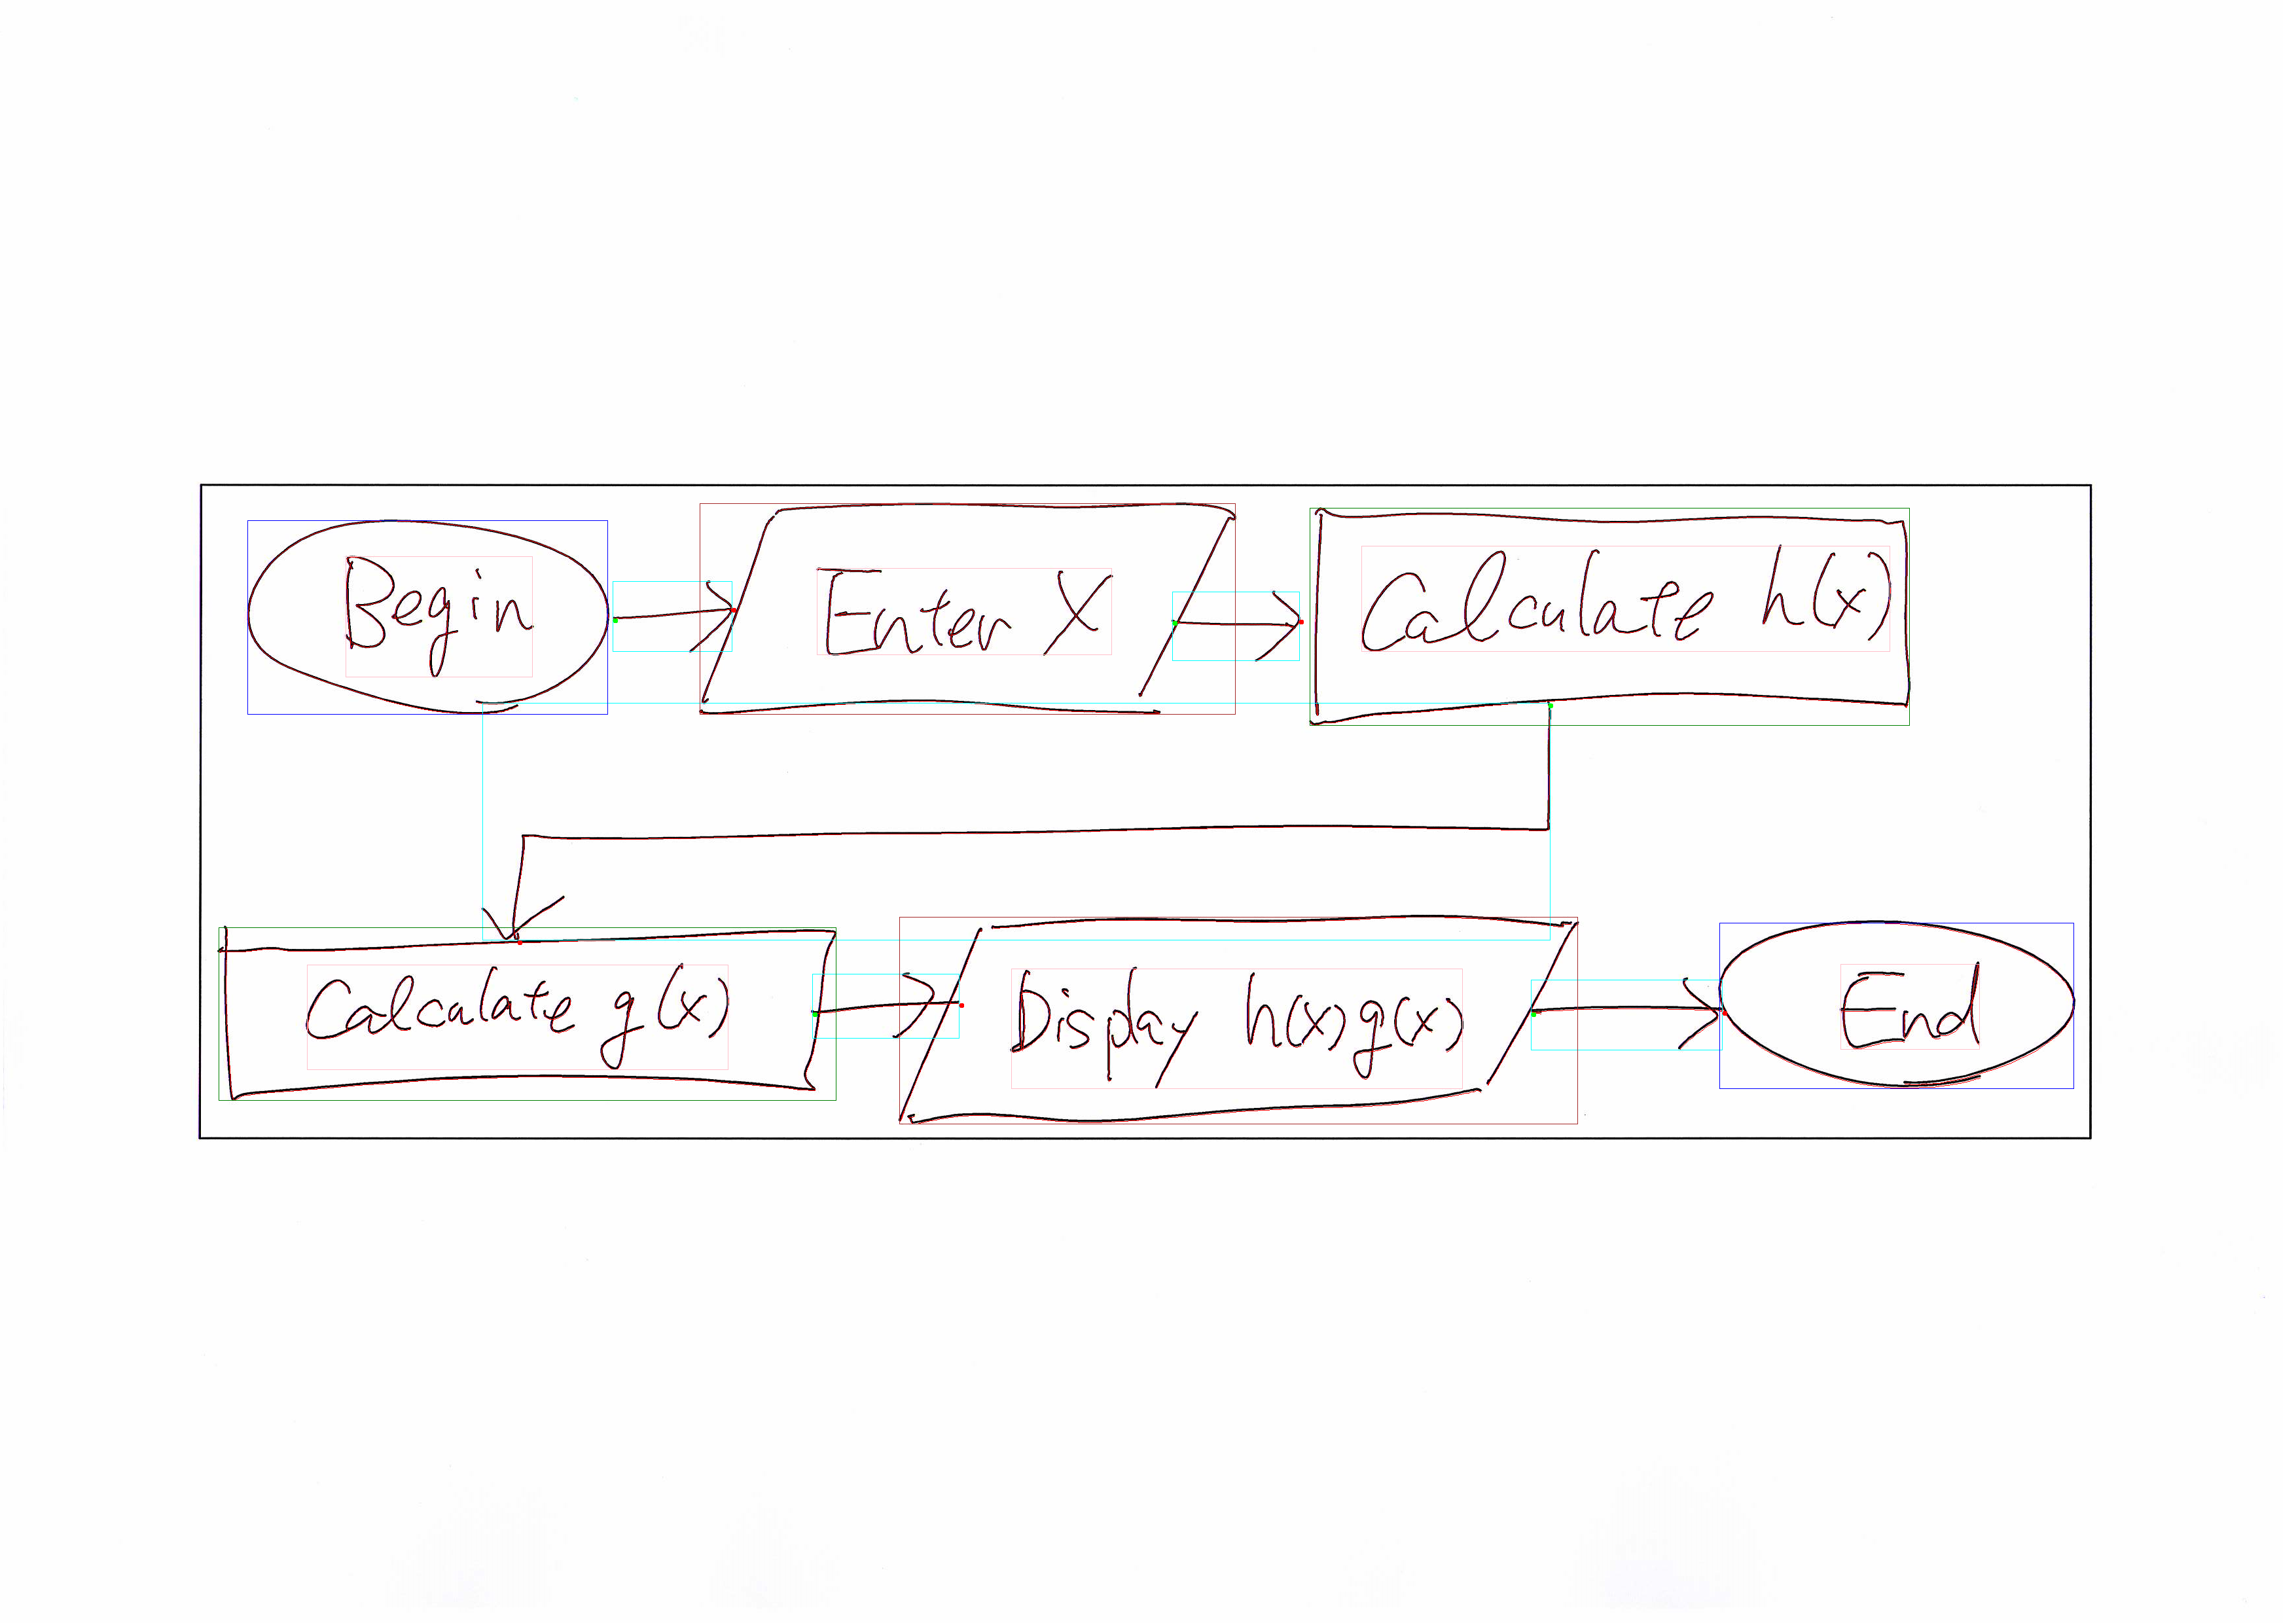 Begin
Enter X
Calculate h(x)
Calculate g(x)
Display h(x) g(x)
End